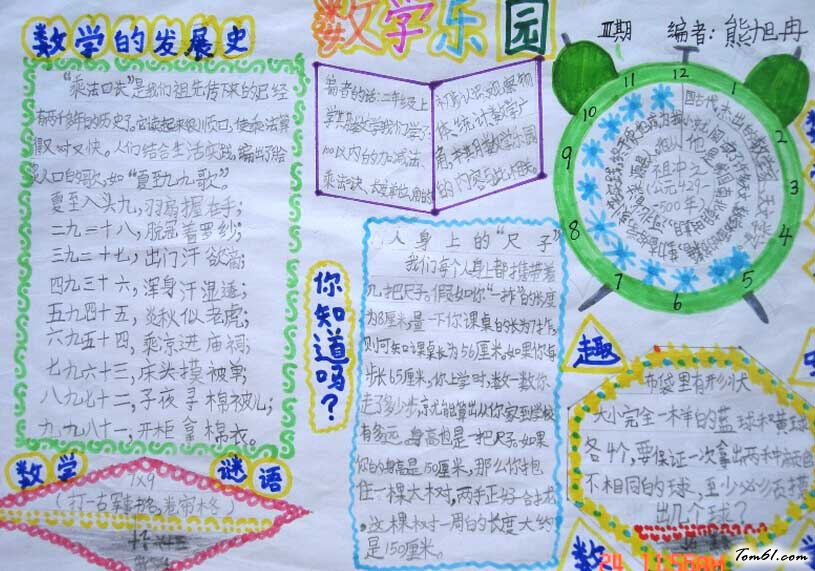 数学的发展史
数学乐园
Ⅲ期 编者：熊旭冉
“乘法口诀”是我们祖先传下来的已经
有两千多年的历史了。它读起来很顺口，使乘法算
得又对又快。人们结合生活实践，编出了脍
炙人口的歌，如“夏至九九歌”。
夏至入头九，羽扇握在手；
二九一十八，脱冠着罗纱；
三九二十七，出门汗欲滴；
四九三十六，浑身汗湿透；
五九四十五，炎秋似老虎；
六九五十四，乘凉进庙祠；
七九六十三，床头摸被单；
八九七十二，子夜寻棉被；
九九八十一，开柜拿棉衣。
编者的话：二年级上
学期数学我们学了
100以内的加减法
乘法口诀、长度单位、角的
初步认识、观察物
体、统计、数学广
角，本期数学乐园
的内容与此相关。
12
1
2
3
4
5
6
7
8
9
10
11
祖冲之
(公元429-
500年)
你知道吗？
人身上的“尺子”
我们每个人身上都携带着
几把尺子。假如你“一拃”的长度
为8厘米，量一下你课桌的长为7拃，
则可知课桌长为56厘米。如果你每
步长65厘米，你上学时，数一数你
走了多少步，就能算出从你家到学校
有多远。身高也是一把尺子。如果
你的身高是150厘米，那么你抱
住一棵大树，两手正好合拢，
这棵树一周的长度大约
是150厘米。
趣
布袋里有形状
大小完全一样的蓝球和黄球
各4个，要保证一次拿出两种颜色
不相同的球，至少必须摸
出几个球？
数学 谜语
7×9
(打一古军事书名，卷帘格)
数
Tom61.com